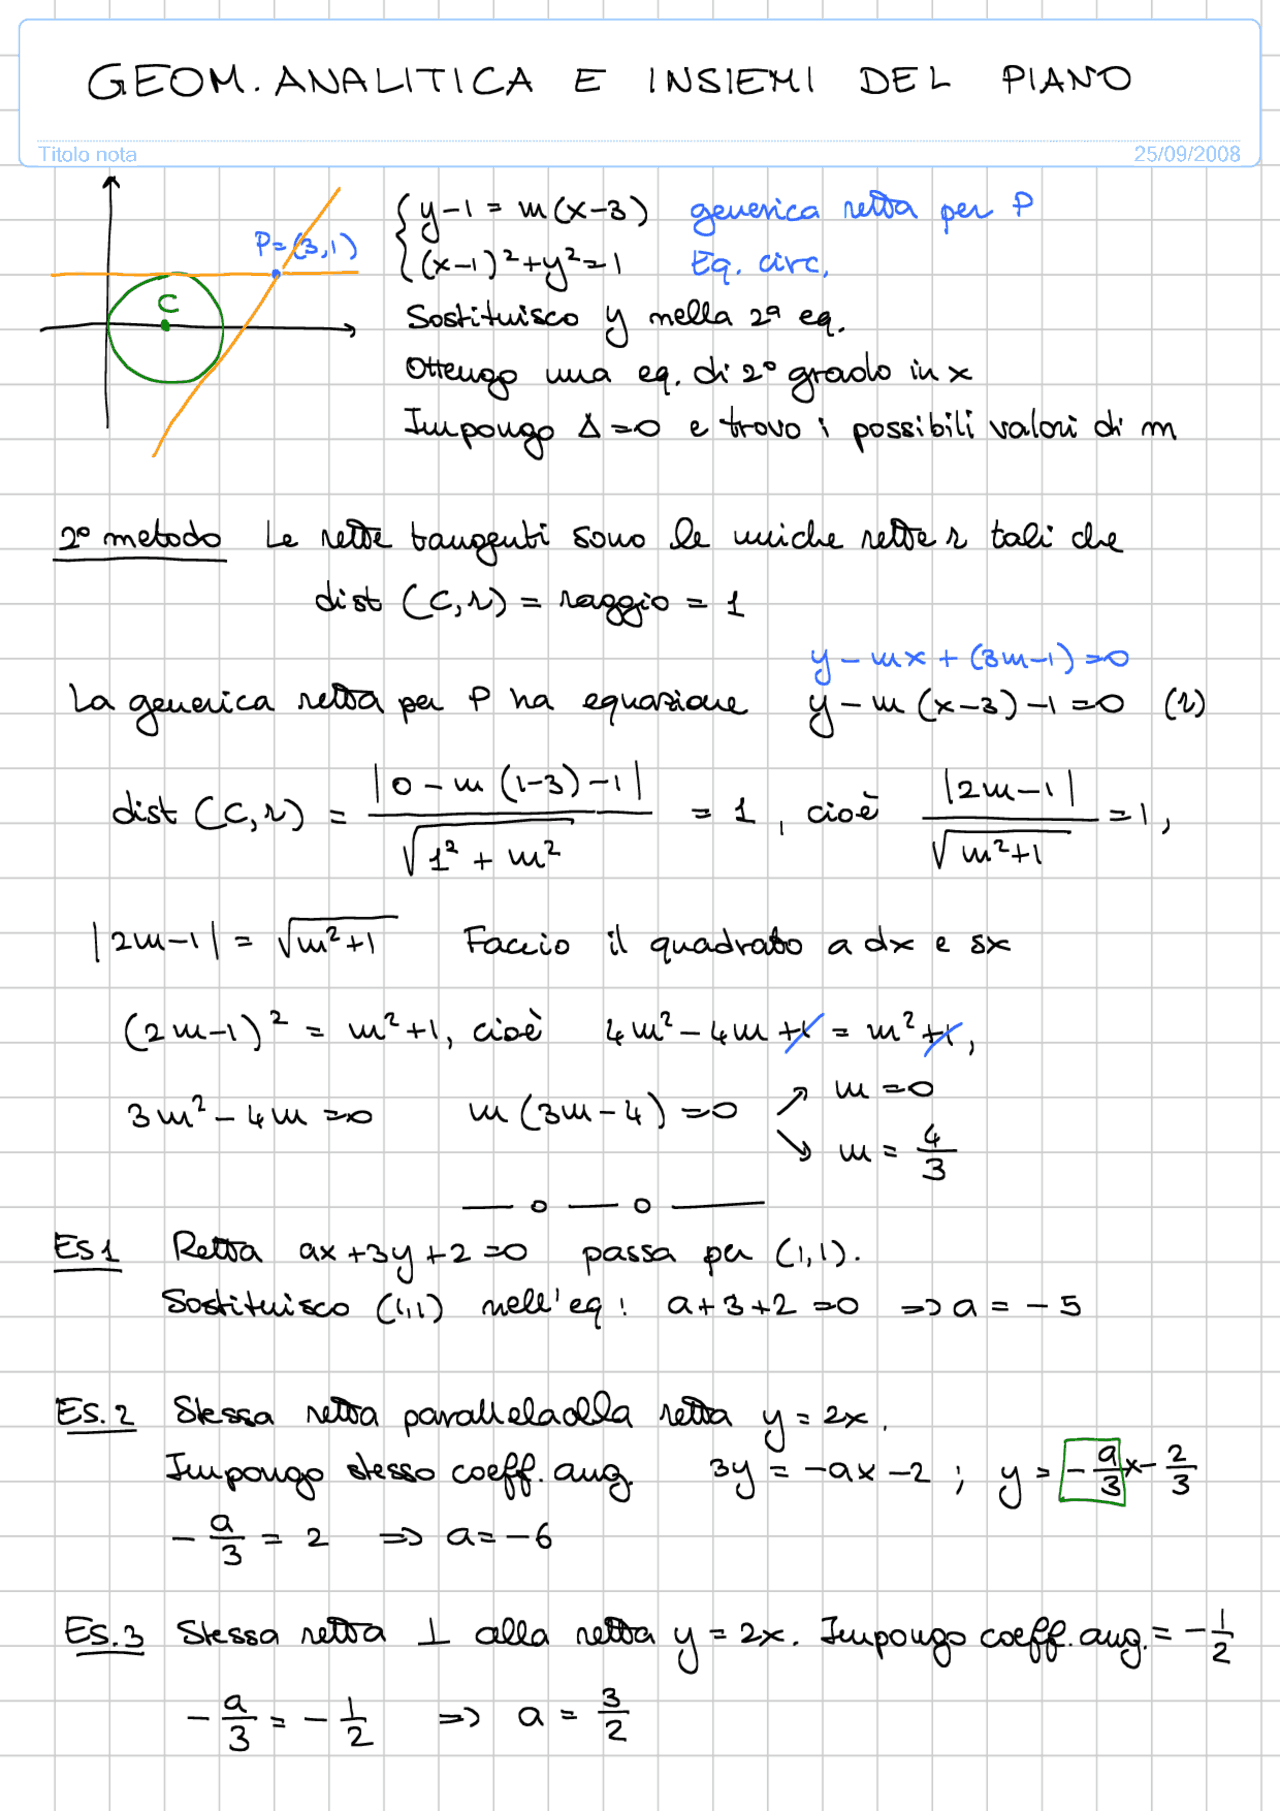 GEOM. ANALITICA E INSIEMI DEL PIANO
Titolo nota 25/09/2008
P=(3,1)
C
{ y-1 = m(x-3) generica retta per P
(x-1)²+y²=1 Eq. circ.
Sostituisco y nella 2ª eq.
Ottengo una eq. di 2° grado in x
Impongo Δ=0 e trovo i possibili valori di m
2° metodo Le rette tangenti sono le uniche rette r tali che
dist (C,r) = raggio = 1
y - mx + (3m-1) = 0
La generica retta per P ha equazione y - m(x-3) - 1 = 0 (r)
dist (C,r) = |0 - m(1-3) - 1| / √(1² + m²) = 1, cioè |2m-1| / √(m²+1) = 1,
|2m-1| = √(m²+1) Faccio il quadrato a dx e sx
(2m-1)² = m²+1, cioè 4m² - 4m + 1 = m² + 1,
3m² - 4m = 0 m(3m-4) = 0 ↗ m = 0
↘ m = 4/3
Es 1 Retta ax+3y+2=0 passa per (1,1).
Sostituisco (1,1) nell'eq: a+3+2=0 => a = -5
Es. 2 Stessa retta parallela alla retta y = 2x.
Impongo stesso coeff. ang. 3y = -ax - 2 ; y = -a/3 x - 2/3
-a/3 = 2 => a = -6
Es. 3 Stessa retta ⊥ alla retta y = 2x. Impongo coeff. ang. = -1/2
-a/3 = -1/2 => a = 3/2